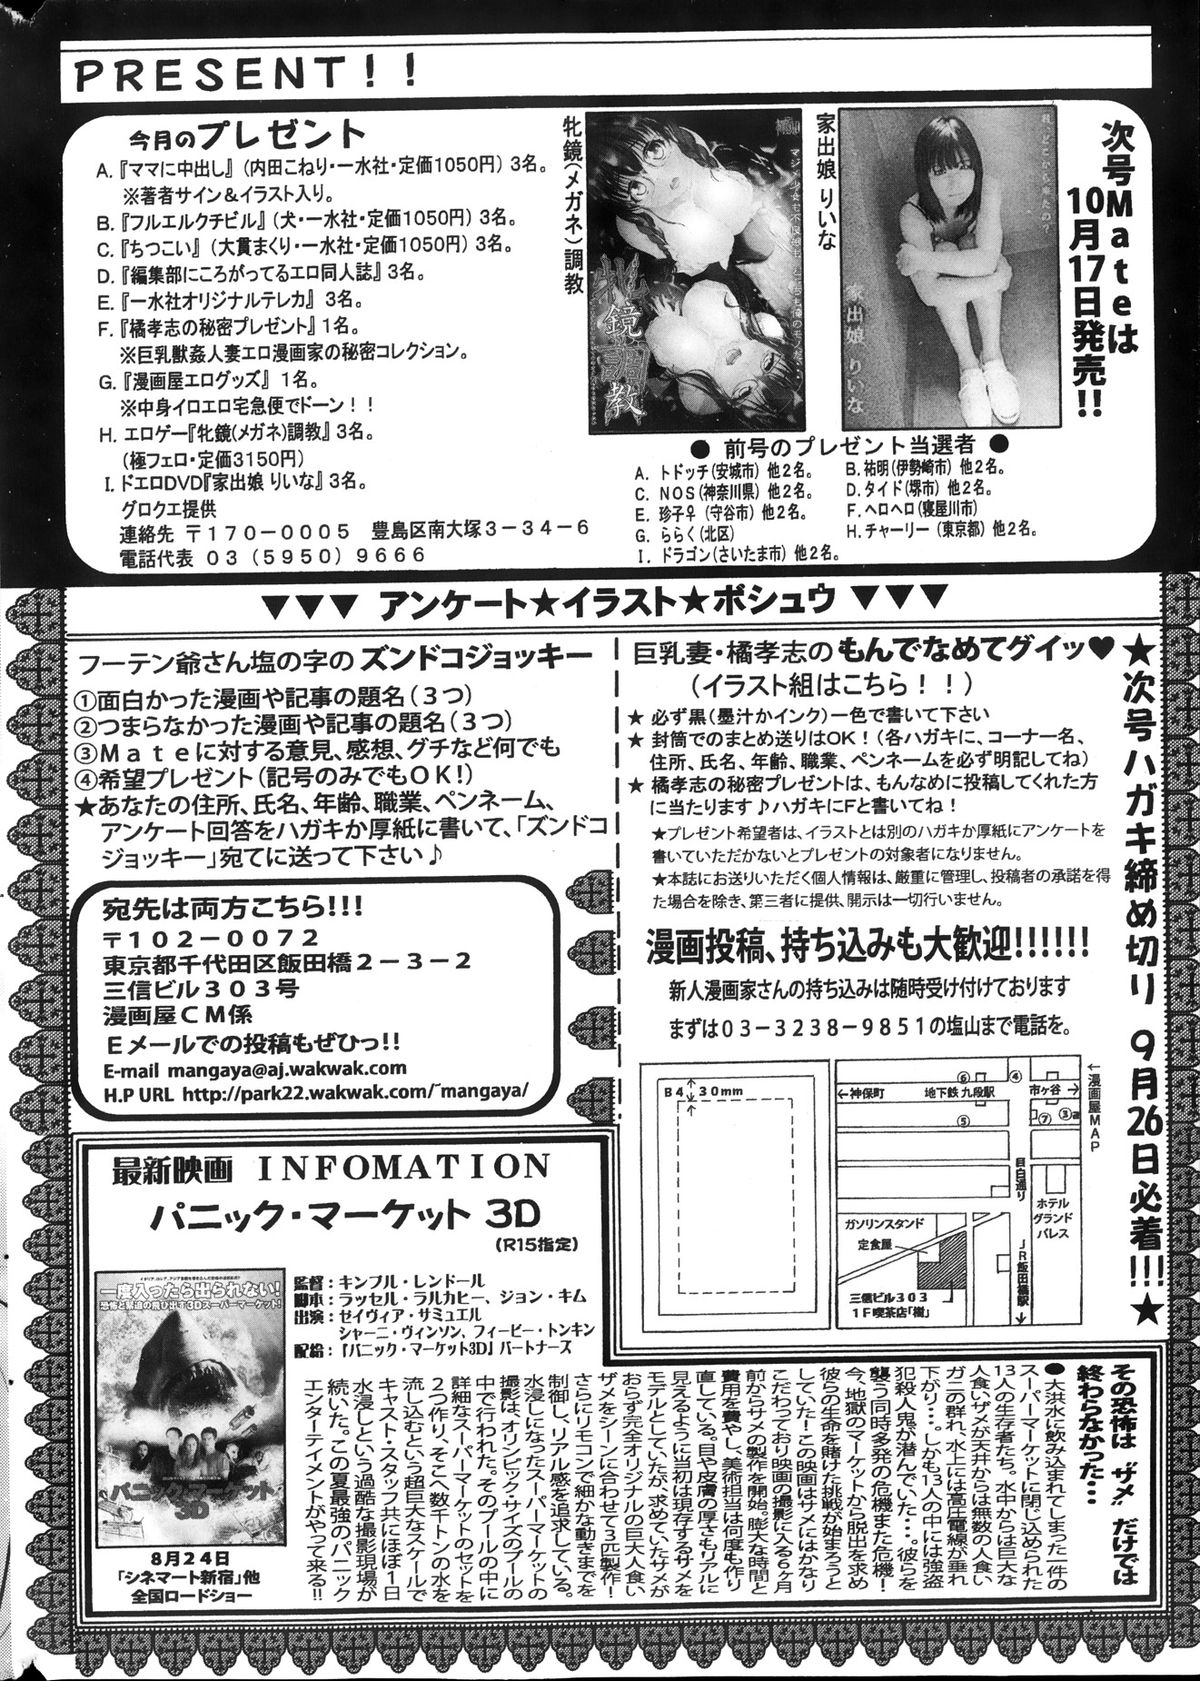 PRESENT!!
今月のプレゼント
A.『ママに中出し』(内田こねり・一水社・定価1050円) 3名。
※著者サイン&イラスト入り。
B.『フルエルクチビル』(犬・一水社・定価1050円) 3名。
C.『ちつこい』(大貫まくり・一水社・定価1050円) 3名。
D.『編集部にころがってるエロ同人誌』3名。
E.『一水社オリジナルテレカ』3名。
F.『橘孝志の秘密プレゼント』1名。
※巨乳獣姦人妻エロ漫画家の秘密コレクション。
G.『漫画屋エログッズ』1名。
※中身イロエロ宅急便でドーン!!
H. エロゲー『牝鏡(メガネ)調教』3名。
(極フェロ・定価3150円)
I. ドエロDVD『家出娘 りいな』3名。
グロクエ提供
連絡先 〒170-0005 豊島区南大塚3-34-6
電話代表 03(5950)9666
牝鏡(メガネ)調教
牝鏡調教
家出娘 りいな
家出娘 りいな
次号Mateは
10月17日発売!!
● 前号のプレゼント当選者 ●
A. トドッチ(安城市) 他2名。
B. 祐明(伊勢崎市) 他2名。
C. NOS(神奈川県) 他2名。
D. タイド(堺市) 他2名。
E. 珍子♀(守谷市) 他2名。
F. ヘロヘロ(寝屋川市)
G. ららく(北区)
H. チャーリー(東京都) 他2名。
I. ドラゴン(さいたま市) 他2名。
▼▼▼ アンケート★イラスト★ボシュウ ▼▼▼
フーテン爺さん塩の字の ズンドコジョッキー
①面白かった漫画や記事の題名(3つ)
②つまらなかった漫画や記事の題名(3つ)
③Mateに対する意見、感想、グチなど何でも
④希望プレゼント(記号のみでもOK!)
★あなたの住所、氏名、年齢、職業、ペンネーム、
アンケート回答をハガキか厚紙に書いて、「ズンドコ
ジョッキー」宛てに送って下さい♪
宛先は両方こちら!!!
〒102-0072
東京都千代田区飯田橋2-3-2
三信ビル303号
漫画屋CM係
Eメールでの投稿もぜひっ!!
E-mail mangaya@aj.wakwak.com
H.P URL http://park22.wakwak.com/~mangaya/
巨乳妻・橘孝志の もんでなめてグイッ♥
(イラスト組はこちら!!)
★ 必ず黒(墨汁かインク)一色で書いて下さい
★ 封筒でのまとめ送りはOK!(各ハガキに、コーナー名、
住所、氏名、年齢、職業、ペンネームを必ず明記してね)
★ 橘孝志の秘密プレゼントは、もんなめに投稿してくれた方
に当たります♪ハガキにFと書いてね!
★プレゼント希望者は、イラストとは別のハガキか厚紙にアンケートを
書いていただかないとプレゼントの対象者になりません。
★本誌にお送りいただく個人情報は、厳重に管理し、投稿者の承諾を得
た場合を除き、第三者に提供、開示は一切行いません。
漫画投稿、持ち込みも大歓迎!!!!!!
新人漫画家さんの持ち込みは随時受け付けております
まずは03-3238-9851の塩山まで電話を。
B4
30mm
←神保町
地下鉄 九段駅
市ヶ谷→
⑥
④
⑤
⑦
③
目白通り
ホテル
グランド
パレス
ガソリンスタンド
定食屋
三信ビル303
1F喫茶店「樹」
JR飯田橋駅
←漫画屋MAP
★次号ハガキ締め切り 9月26日必着!!!★
最新映画 INFOMATION
パニック・マーケット 3D
(R15指定)
一度入ったら出られない!
恐怖と緊迫の飛び出す3Dスーパーマーケット!
パニック・マーケット
3D
8月24日
「シネマート新宿」他
全国ロードショー
監督:キンブル・レンドール
脚本:ラッセル・ラルカヒー、ジョン・キム
出演:ゼイヴィア・サミュエル
シャーニ・ヴィンソン、フィービー・トンキン
配給:『パニック・マーケット3D』パートナーズ
その恐怖は〝ザメ〟だけでは
終わらなかった…
●大洪水に飲み込まれてしまった一件の
スーパーマーケットに閉じ込められた
13人の生存者たち。水中からは巨大な
人食いザメが天井からは無数の人食い
ガニの群れ、水上には高圧電線が垂れ
下がり…。しかも13人の中には強盗
犯殺人鬼が潜んでいた…。彼らを
襲う同時多発の危機また危機!
今、地獄のマーケットから脱出を求め
彼らの生命を賭けた挑戦が始まろうと
していた!この映画はサメにはかなり
こだわっており映画の撮影に入る6ヶ月
前からサメの製作を開始。膨大な時間と
費用を費やし、美術担当は何度も作り
直している。目や皮膚の厚さもリアルに
見えるように当初は現存するザメを
モデルとしていたが、求めていたザメが
おらず完全オリジナルの巨大人食い
ザメをシーンに合わせて3匹製作!
さらにリモコンで細かな動きまでを
制御し、リアル感を追求している。
水浸しになったスーパーマーケットの
撮影は、オリンピック・サイズのプールの
中で行われた。そのプールの中に
詳細なスーパーマーケットのセットを
2つ作り、そこへ数千トンの水を
流し込むという超巨大なスケールで
キャスト・スタッフ共にほぼ1日
水浸しという過酷な撮影現場が
続いた。この夏最強のパニック
エンターテイメントがやって来る!!